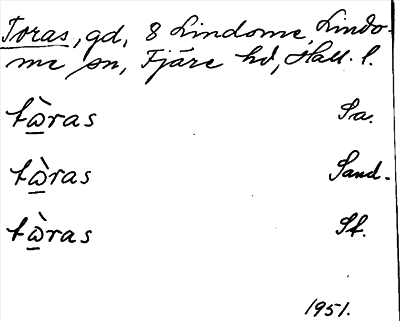 Toras, gd, 8 Lindome, Lindo-
me sn, Fjäre hd, Hall. l.
tὼ̲ras Sa.
tὼ̲ras Sand.
tὼ̲ras St.
1951.